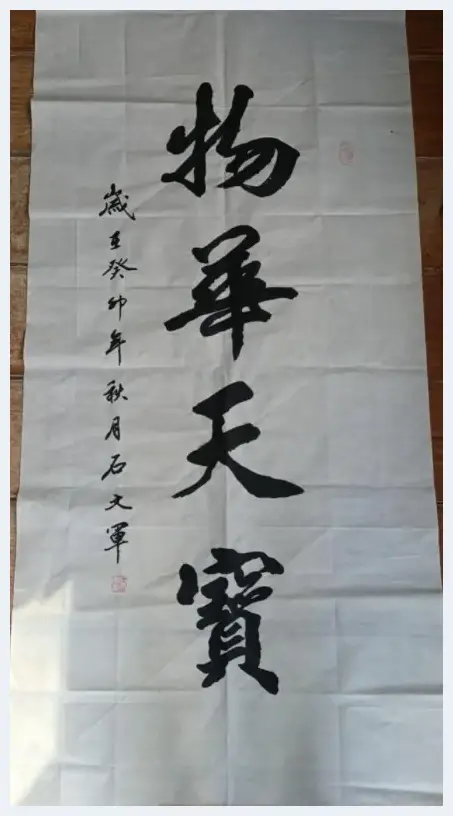 物華天寶
歲在癸卯年秋月石文軍